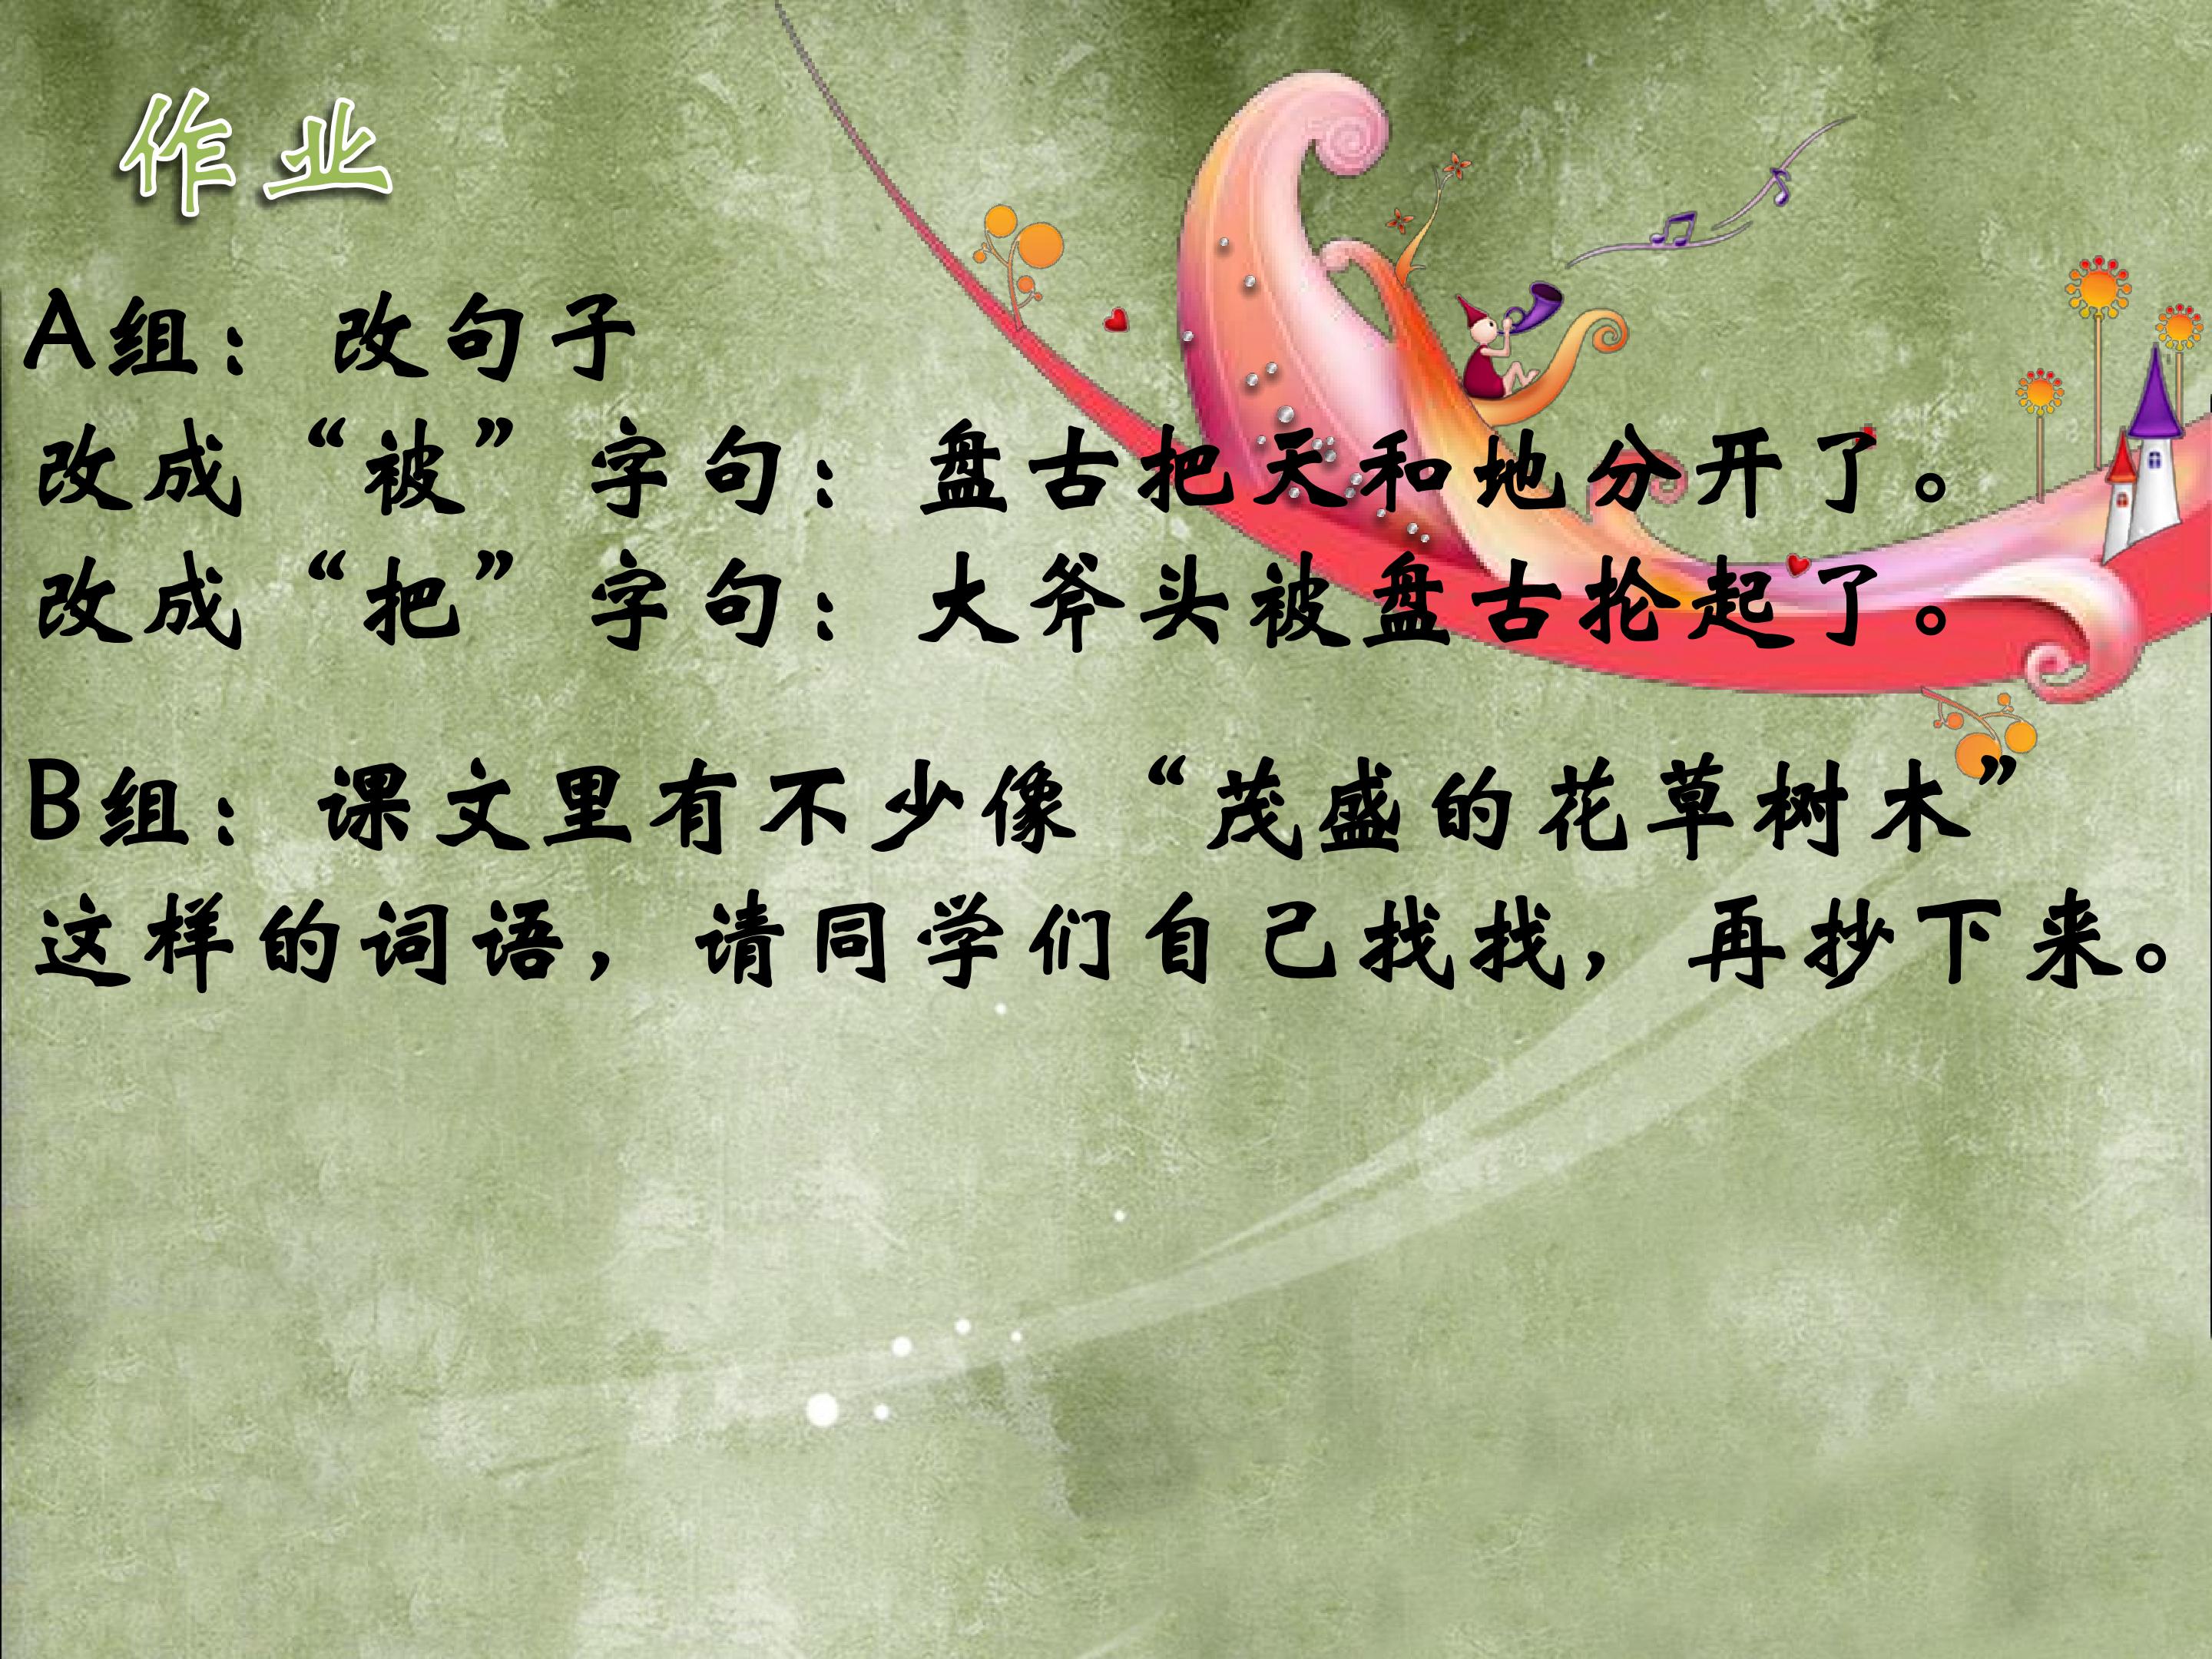 作业
A组：改句子
改成“被”字句：盘古把天和地分开了。
改成“把”字句：大斧头被盘古抡起了。
B组：课文里有不少像“茂盛的花草树木”
这样的词语，请同学们自己找找，再抄下来。